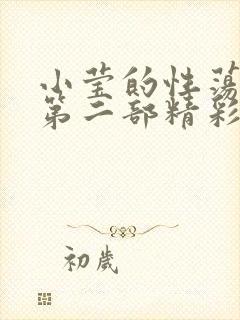 小莹的性荡
第二部精彩
初歲